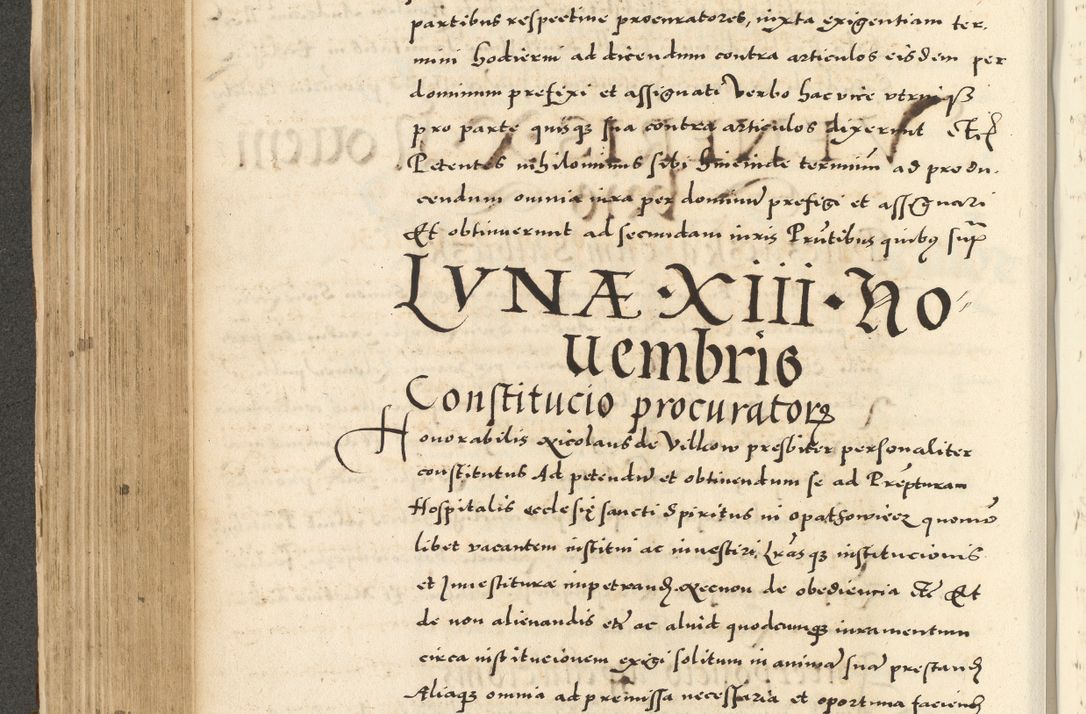 partibus respective procuratores, iuxta exigentiam ter,
mini hodierni ad dicendum contra articulos eisdem per
dominum prefixi et assignati Verbo hac vice
pro parte quisq̃ sua contra articulos dixerunt
Petentes nihilominus sibi hincinde terminũ ad produ,
cendum omnia iura per dominũ prefigi et assignari
Et obtinuerunt ad secundam iuris Pñtibus quibus supͣ
LVNÆ · XIII · No
uembris
Constitucio procuratorꝝ
Honorabilis Nicolaus de Vilkow presbiter personaliter
constitutus Ad petendũ et obtinendum se ad Prepturam
Hospitalis ecclesię sancti Spiritus in opathowiecz quomo
libet vacantem institui ac investiri, Lrãs q̃ institucionis
et Investiturę impetrand, Necnon de obediencia etc̃ Et
de non alienandis etc̃ ac aliud quodcunq̃ iuramentum
circa institucionem exigi solitum in animã suã prestand
Aliaq̃ omnia ad premissa necessaria et oportuna faciend